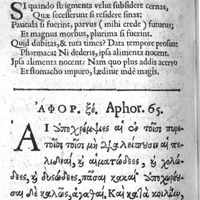 SI quando strigmenta velut subsidere cernas,
Quæ fecesserunt si residere sinas:
Paucula si fuerint, parvus (mihi crede) futurus;
Et magnus morbus, plurima si fuerint.
Quid dubitas, & tuta times? Data tempore prosunt
Pharmaca: Ni dederis, ipsa alimenta nocent.
Ipsa alimenta nocent: Nam quo plus addis acervo
Et stomacho impuro, læditur inde magis.
ἈΦΟΡ. ξέ. Aphor. 65.
ΑΙ ὑποχ αἱ ἐν τοῖσι πυρε-
τοῖσι τοῖσι μὴ διαλείπουσι αἱ πε-
λιδναὶ, ἢ αἱματώδεες, ἢ χολώ-
δεες, ἢ δυσώδεες, πᾶσαι κακαί· ὑποχωρέου-
σαι δὲ καλῶς, ἀγαθαί. Καὶ κατὰ κοιλίην,